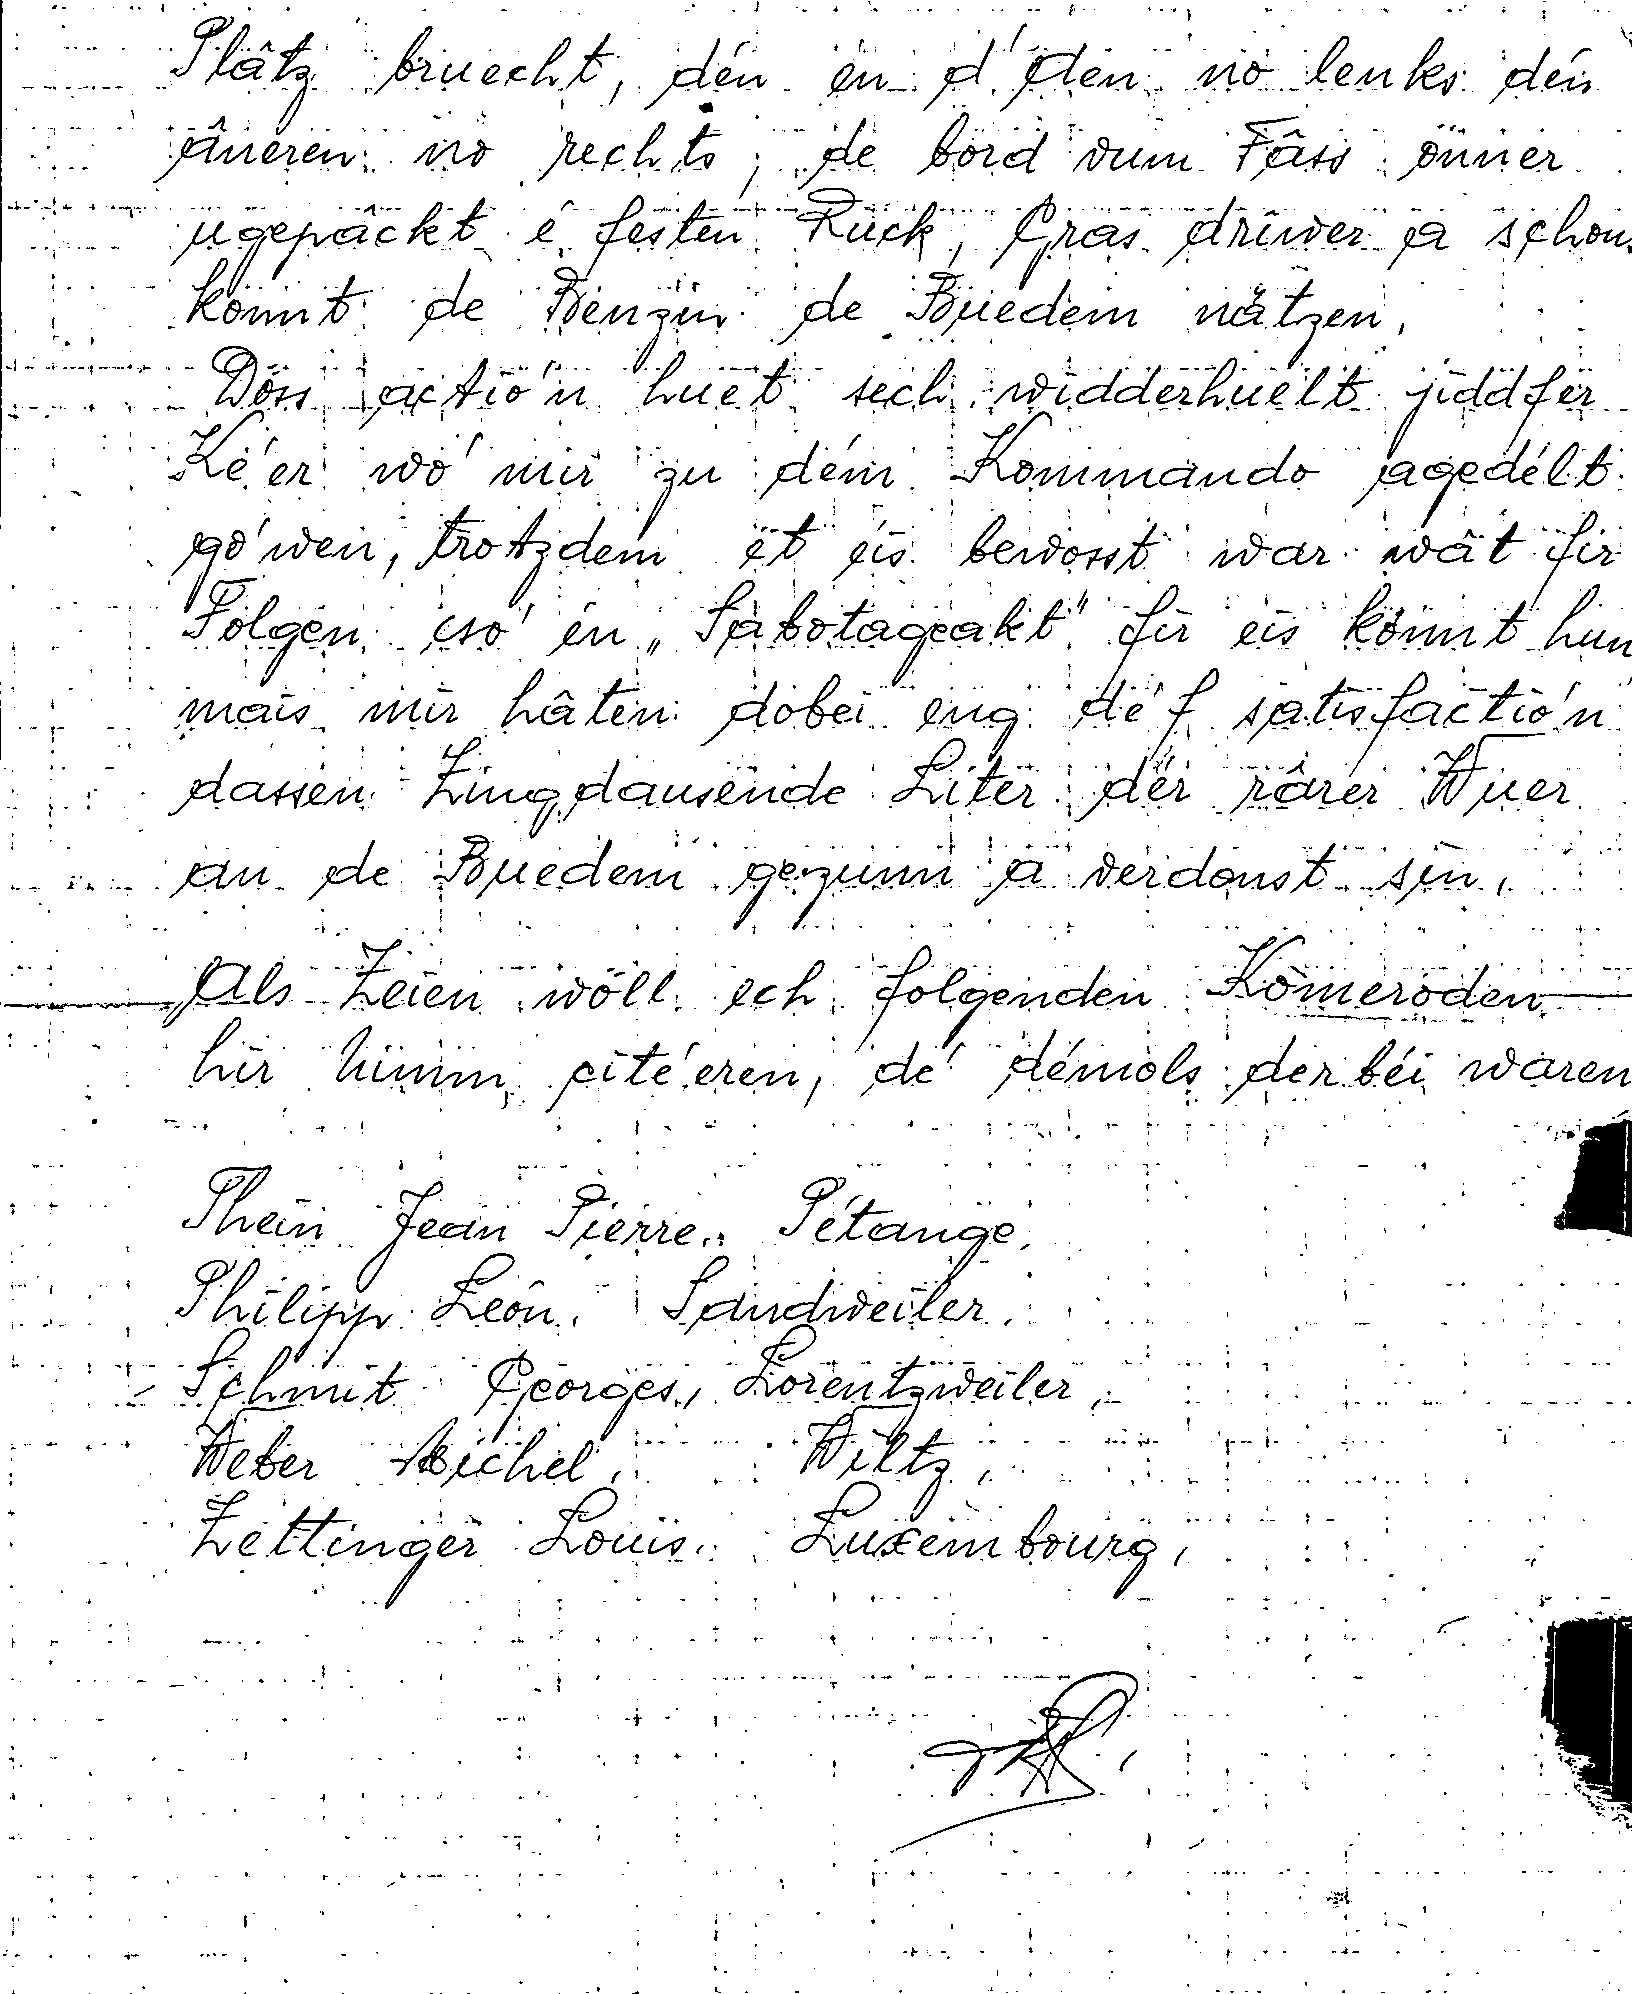 Plâtz bruecht, dén én d'Oen no lenks dén
âneren no rechts, de bord vum Fâss önner
ugepäckt é festen Ruck, Gras driwer a schon
könnt de Benzin de Buedem nätzen.
Döss actio'n huet sech widderhuelt jiddfer
Ke'er wo' mir zu dém Kommando agedélt
go'wen, trotzdem ët éis bewosst war wât fir
Folgen eso' en „Sabotageakt" fir eis könnt hun
mais mir hâten dobei eng de'f satisfactio'n
dassen Zingdausende Liter der rârer Wuer
an de Buedem gezunn a verdonst sin.
Als Zeien wöll ech folgenden Komeroden
hir Numm cite'eren, de' démols derbéi waren
Thein Jean Pierre. Pétange.
Philipp Léon. Sandweiler.
Schmit Georges, Lorentzweiler,
Weber Michel, Wiltz,
Zettinger Louis. Luxembourg,